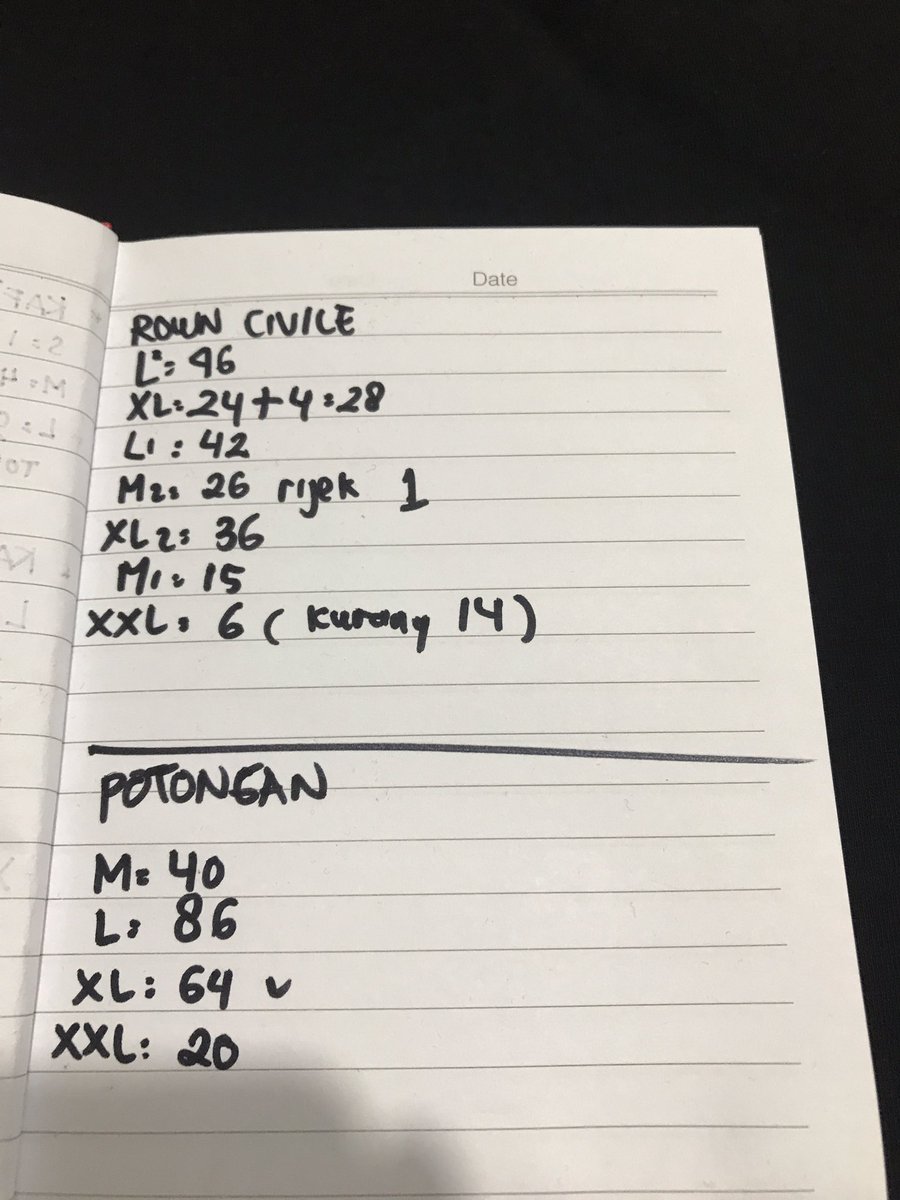 Date
ROWN CIVILE
L²= 46
XL=24+4=28
L1 : 42
M2= 26 rijek 1
XL2= 36
M1= 15
XXL= 6 ( kurang 14 )
POTONGAN
M= 40
L= 86
XL: 64 ✓
XXL: 20